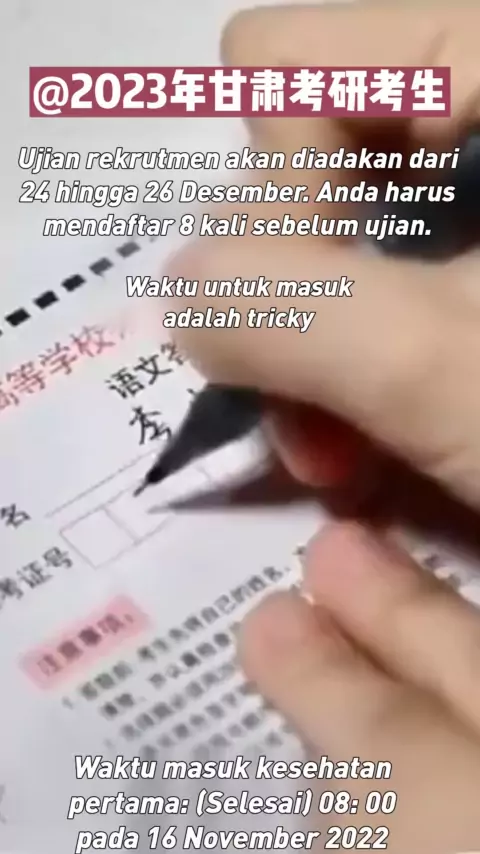 @2023年甘肃考研考生
Ujian rekrutmen akan diadakan dari
24 hingga 26 Desember. Anda harus
mendaftar 8 kali sebelum ujian.
Waktu untuk masuk
adalah tricky
高等学校
语文答
名
考证号
注意事项:
Waktu masuk kesehatan
pertama: (Selesai) 08: 00
pada 16 November 2022